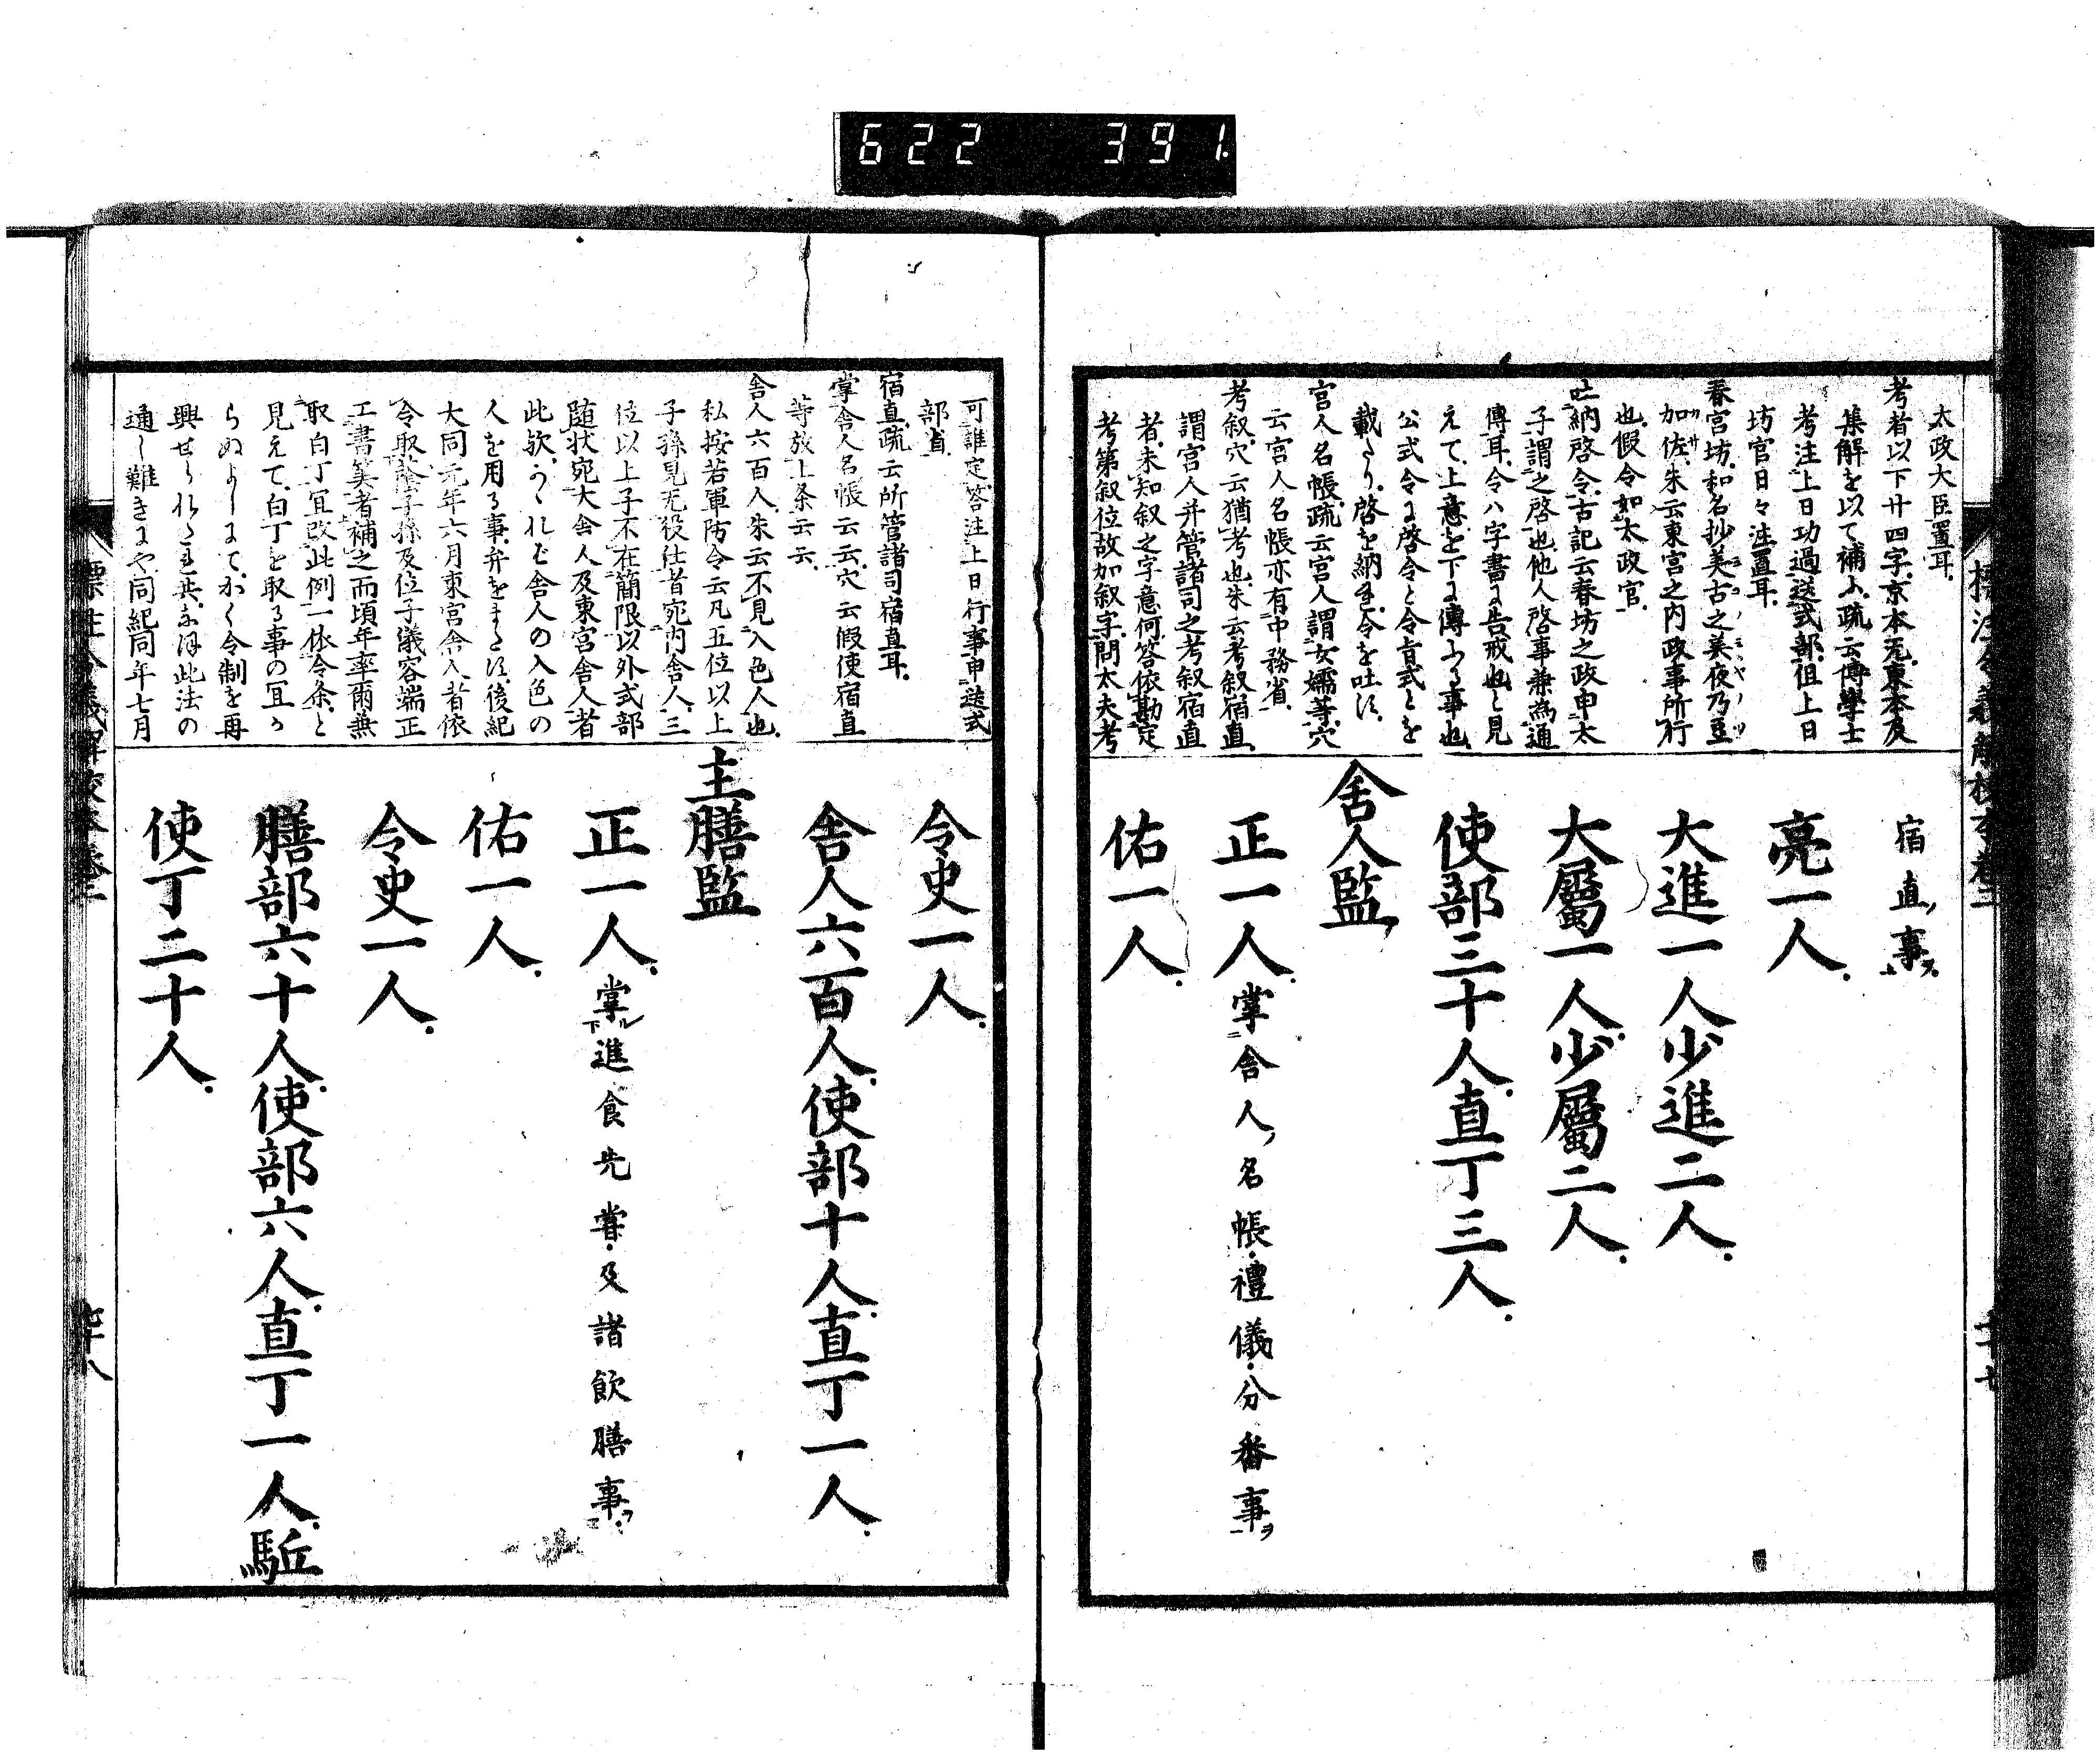 622 391.
太政大臣置耳.
考者以下廿四字.京本无.東本及
集解を以て補ふ.疏云.傅學士
考注上日功過送式部.徂上日
坊官日々注置耳.
春宮坊.和名抄美古之美夜乃豆
加佐.朱云東宮之内政事所行
也.假令如太政官.
吐納啓令.古記云春坊之政申太
子謂之啓也.他人啓事兼為通
傳耳.令ハ字書に告戒也と見
えて.上意を下に傳ふる事也.
公式令に啓令と令旨式とを
載たり.啓を納れ.令を吐す.
宮人名帳.疏云宮人謂女孺等.穴
云宮人名帳亦有中務省.
考叙.穴云猶考也.朱云考叙宿直
謂宮人并管諸司之考叙宿直
者.未知叙之字意何.答依勘定
考第叙位故加叙字.問大夫考
宿直,事ヲ
亮一人.
大進一人少進二人.
大屬一人少屬二人.
使部三十人.直丁三人.
舍人監
正一人.掌舍人,名帳.禮儀.分番事ヲ
佑一人.
標注令義解校本卷二
可誰定.答注上日行事申送式
部省.
宿直.疏云所管諸司宿直耳.
掌舍人名帳云云.穴云假使宿直
等放上条云云.
舍人六百人.朱云不見入色人也.
私按若軍防令云凡五位以上
子孫見无役仕者宛内舍人.三
位以上子不在簡限以外式部
随状宛大舍人及東宮舍人者
此歟.かゝれど舍人の入色の
人を用る事.弁をまたず.後紀
大同元年六月東宮舍人者依
令取蔭子孫及位子儀容端正
工書笇者補之而頃年率爾兼
取白丁冝改此例一依令条.と
見えて.白丁を取る事の冝か
らぬよしにて.かく令制を再
興せられしも.其なほ此法の
通し難きにや.同紀同年七月
令史一人.
舍人六百人.使部十人.直丁一人.
主膳監
正一人.掌ル進食先嘗.及諸飲膳事ヲ
佑一人.
令史一人.
膳部六十人.使部六人.直丁一人.駈
使丁二十人.